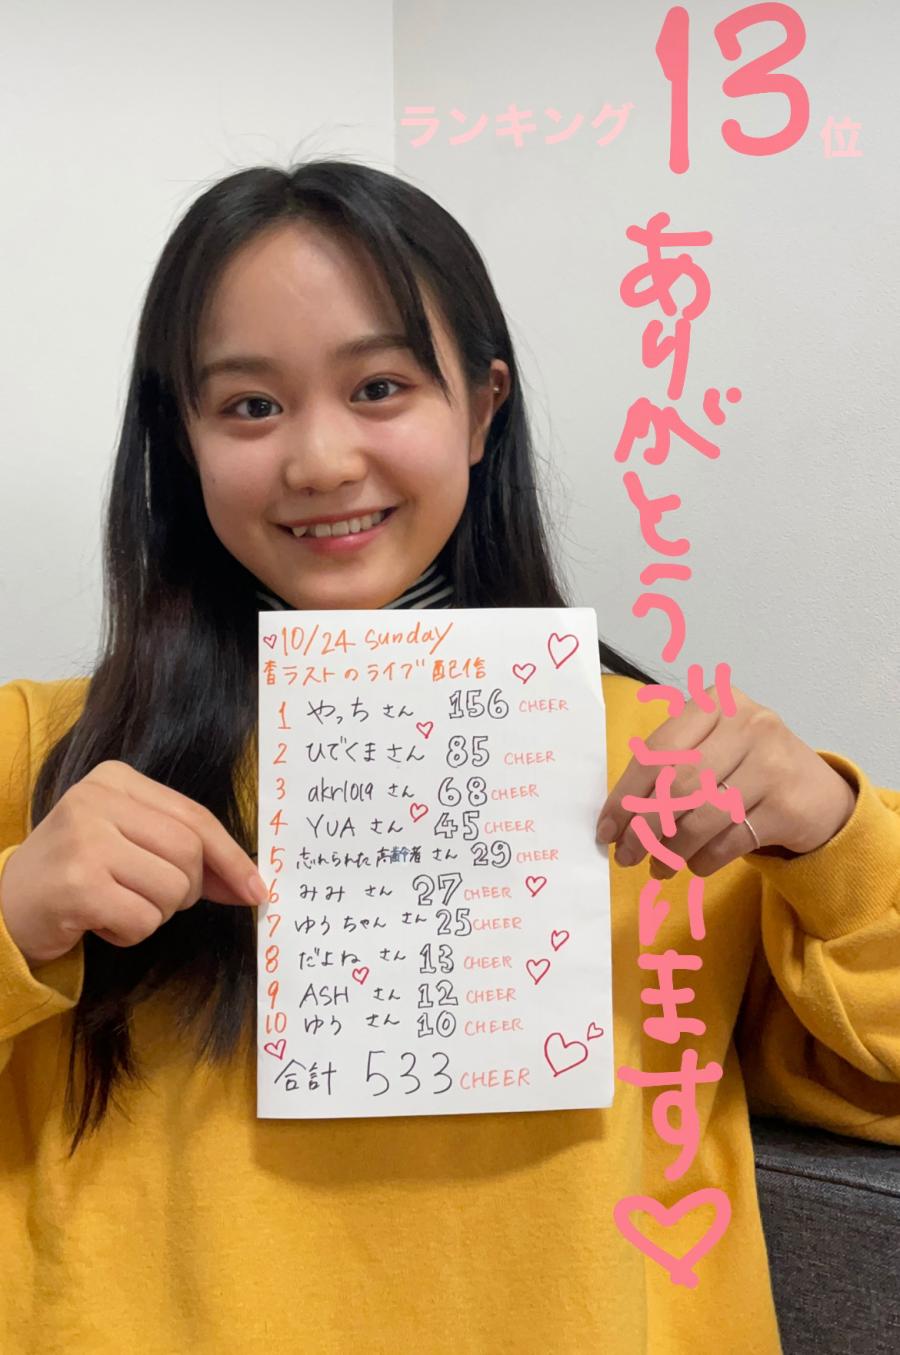 ランキング 13 位
ありがとうございます♡
10/24 sunday
ラストのライブ配信
1 やっち さん 156 CHEER
2 ひでくま さん 85 CHEER
3 akr1019 さん 68 CHEER
4 YUA さん 45 CHEER
5 忘れられた高齢者 さん 29 CHEER
6 みみ さん 27 CHEER
7 ゆうちゃん さん 25 CHEER
8 だよね さん 13 CHEER
9 ASH さん 12 CHEER
10 ゆう さん 10 CHEER
合計 533 CHEER